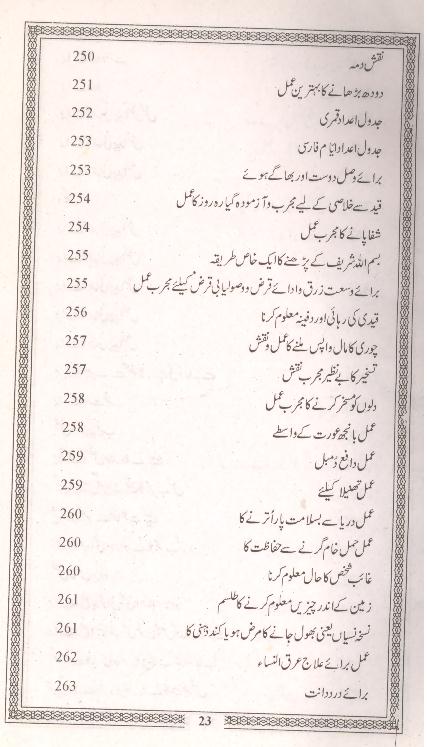 نقش دمہ 250
دودھ بڑھانے کا بہترین عمل 251
جدول اعداد قمری 252
جدول اعداد ایام فارسی 253
برائے وصل دوست اور بھاگے ہوئے 253
قید سے خلاصی کے لیے مجرب و آزمودہ گیارہ روز کا عمل 254
شفا پانے کا مجرب عمل 254
بسم اللہ شریف کے پڑھنے کا ایک خاص طریقہ 255
برائے وسعت زرق و ادائے قرض و وصولیابی قرض کیلئے مجرب عمل 255
قیدی کی رہائی اور دفینہ معلوم کرنا 256
چوری کا مال واپس ملنے کا عمل و نقش 257
تسخیر کا بے نظیر مجرب نقش 257
دلوں کو مسخر کرنے کا مجرب عمل 258
عمل بانجھ عورت کے واسطے 258
عمل دافع دُمبل 259
عمل تھنیلا کیلئے 259
عمل دریا سے بسلامت پار اُترنے کا 260
عمل حمل خام گرنے سے حفاظت کا 260
غائب شخص کا حال معلوم کرنا 260
زمین کے اندر چیزیں معلوم کرنے کا طلسم 261
نسخہ نسیاں یعنی بھول جانے کا مرض ہو یا کند ذہنی کا 261
عمل برائے علاج عرق النساء 262
برائے درد دانت 263
23